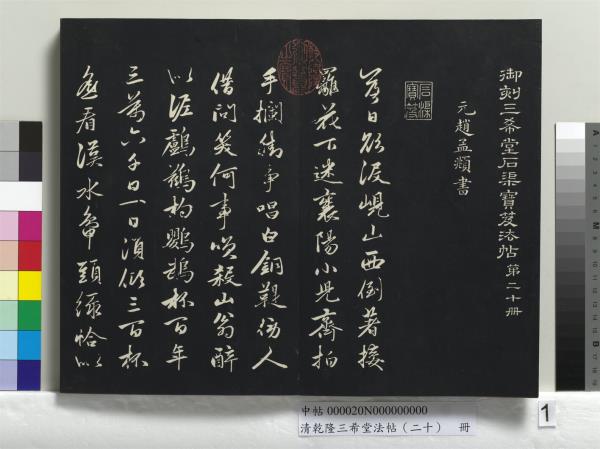 御刻三希堂石渠寶笈法帖第二十冊
元趙孟頫書
石渠寶笈
落日欲沒峴山西倒著接
䍦花下迷襄陽小兒齊拍
手攔街爭唱白銅鞮傍人
借問笑何事笑殺山翁醉
似泥鸕鶿杓鸚鵡杯百年
三萬六千日一日須傾三百杯
遙看漢水鴨頭綠恰似
中帖 000020N000000000
清乾隆三希堂法帖（二十） 冊
1